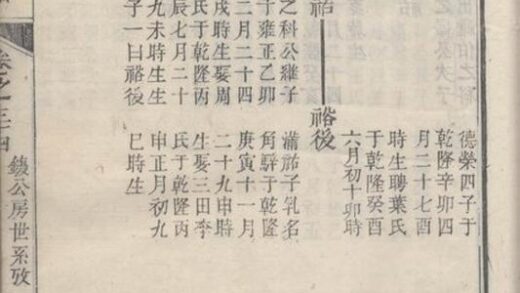 德榮四子于
乾隆辛卯四
月二十七酉
時生聘葉氏
于乾隆癸酉
六月初十卯時
詒
裕後
之科公繼子
于雍正乙卯
二月二十四
戌時生娶周
氏于乾隆丙
辰七月二十
九未時生生
子一曰裕後
蒲詒子乳名
角騂于乾隆
庚寅十一月
二十九申時
生娶三田李
氏于乾隆丙
申正月初九
巳時生
卷之三
鍐公房世系攷